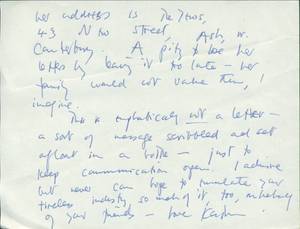 her address is The Mews,
43 New Street, Ash, nr.
Canterbury. A pity to lose her
letters by being it too late – her
family would not value them, I
imagine.
This is emphatically not a letter –
a sort of message scribbled and set
afloat in a bottle – just to
keep communication open. I admire
but never can hope to emulate your
tireless industry, so much of it, too, on behalf
of your friends – love